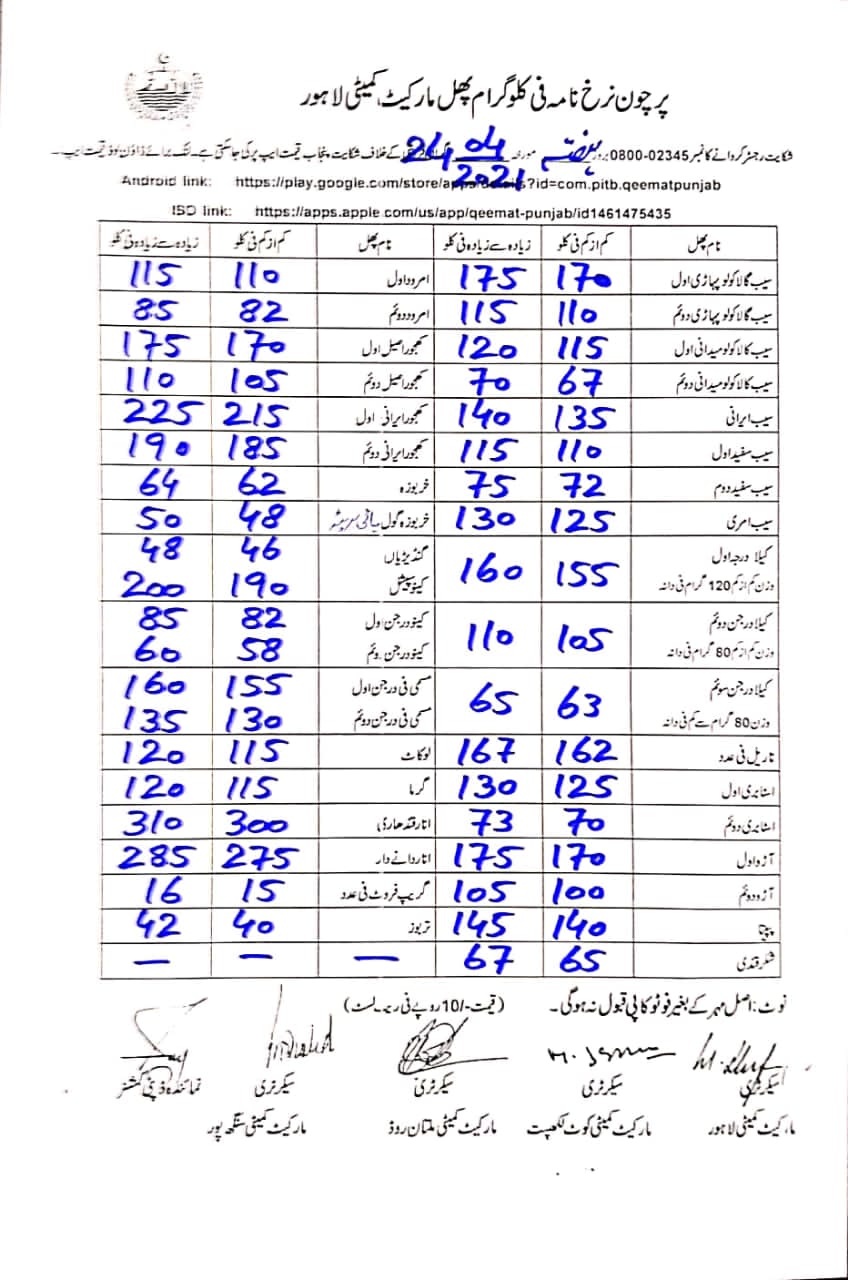 پرچون نرخ نامہ فی کلوگرام پھل مارکیٹ کمیٹی لاہور
شکایت رجسٹر کروانے کا نمبر 02345-0800 بروز ہفتہ مورخہ 24 04 2021 کے خلاف شکایت پنجاب قیمت ایپ پر کی جا سکتی ہے۔ لنک برائے ڈاؤن لوڈ قیمت ایپ۔
Android link: https://play.google.com/store/apps/details?id=com.pitb.qeematpunjab
ISO link: https://apps.apple.com/us/app/qeemat-punjab/id1461475435
نام پھل کم از کم فی کلو زیادہ سے زیادہ فی کلو نام پھل کم از کم فی کلو زیادہ سے زیادہ فی کلو
سیب گالا کولو پہاڑی اول 170 175 امرود اول 110 115
سیب گالا کولو پہاڑی دوئم 110 115 امرود دوئم 82 85
سیب کالا کولو میدانی اول 115 120 کھجور اصیل اول 170 175
سیب کالا کولو میدانی دوئم 67 70 کھجور اصیل دوئم 105 110
سیب ایرانی 135 140 کھجور ایرانی اول 215 225
سیب سفید اول 110 115 کھجور ایرانی دوئم 185 190
سیب سفید دوم 72 75 خربوزہ 62 64
سیب امری 125 130 خربوزہ گول 48 50
کیلا درجہ اول 155 160 گنڈیریاں 46 48
وزن کم از کم 120 گرام فی دانہ کینو پیشل 190 200
کیلا درجن دوئم 105 110 کینو درجن اول 82 85
وزن کم از کم 80 گرام فی دانہ کینو درجن دوئم 58 60
کیلا درجن سوئم 63 65 مسمی فی درجن اول 155 160
وزن 80 گرام سے کم فی دانہ مسمی فی درجن دوئم 130 135
ناریل فی عدد 162 167 لوکاٹ 115 120
اسٹابری اول 125 130 گرما 115 120
اسٹابری دوئم 70 73 انار قندھاری 300 310
آڑو اول 170 175 انار دانے دار 275 285
آڑو دوئم 100 105 گریپ فروٹ فی عدد 15 16
پپیتا 140 145 تربوز 40 42
شکرقندی 65 67 — — —
نوٹ: اصل مہر کے بغیر فوٹو کاپی قبول نہ ہوگی۔ (قیمت -/10 روپے فی ریٹ لسٹ)
سیکرٹری سیکرٹری سیکرٹری سیکرٹری نمائندہ ڈپٹی کمشنر
مارکیٹ کمیٹی لاہور مارکیٹ کمیٹی کوٹ لکھپت مارکیٹ کمیٹی ملتان روڈ مارکیٹ کمیٹی سنگھ پور